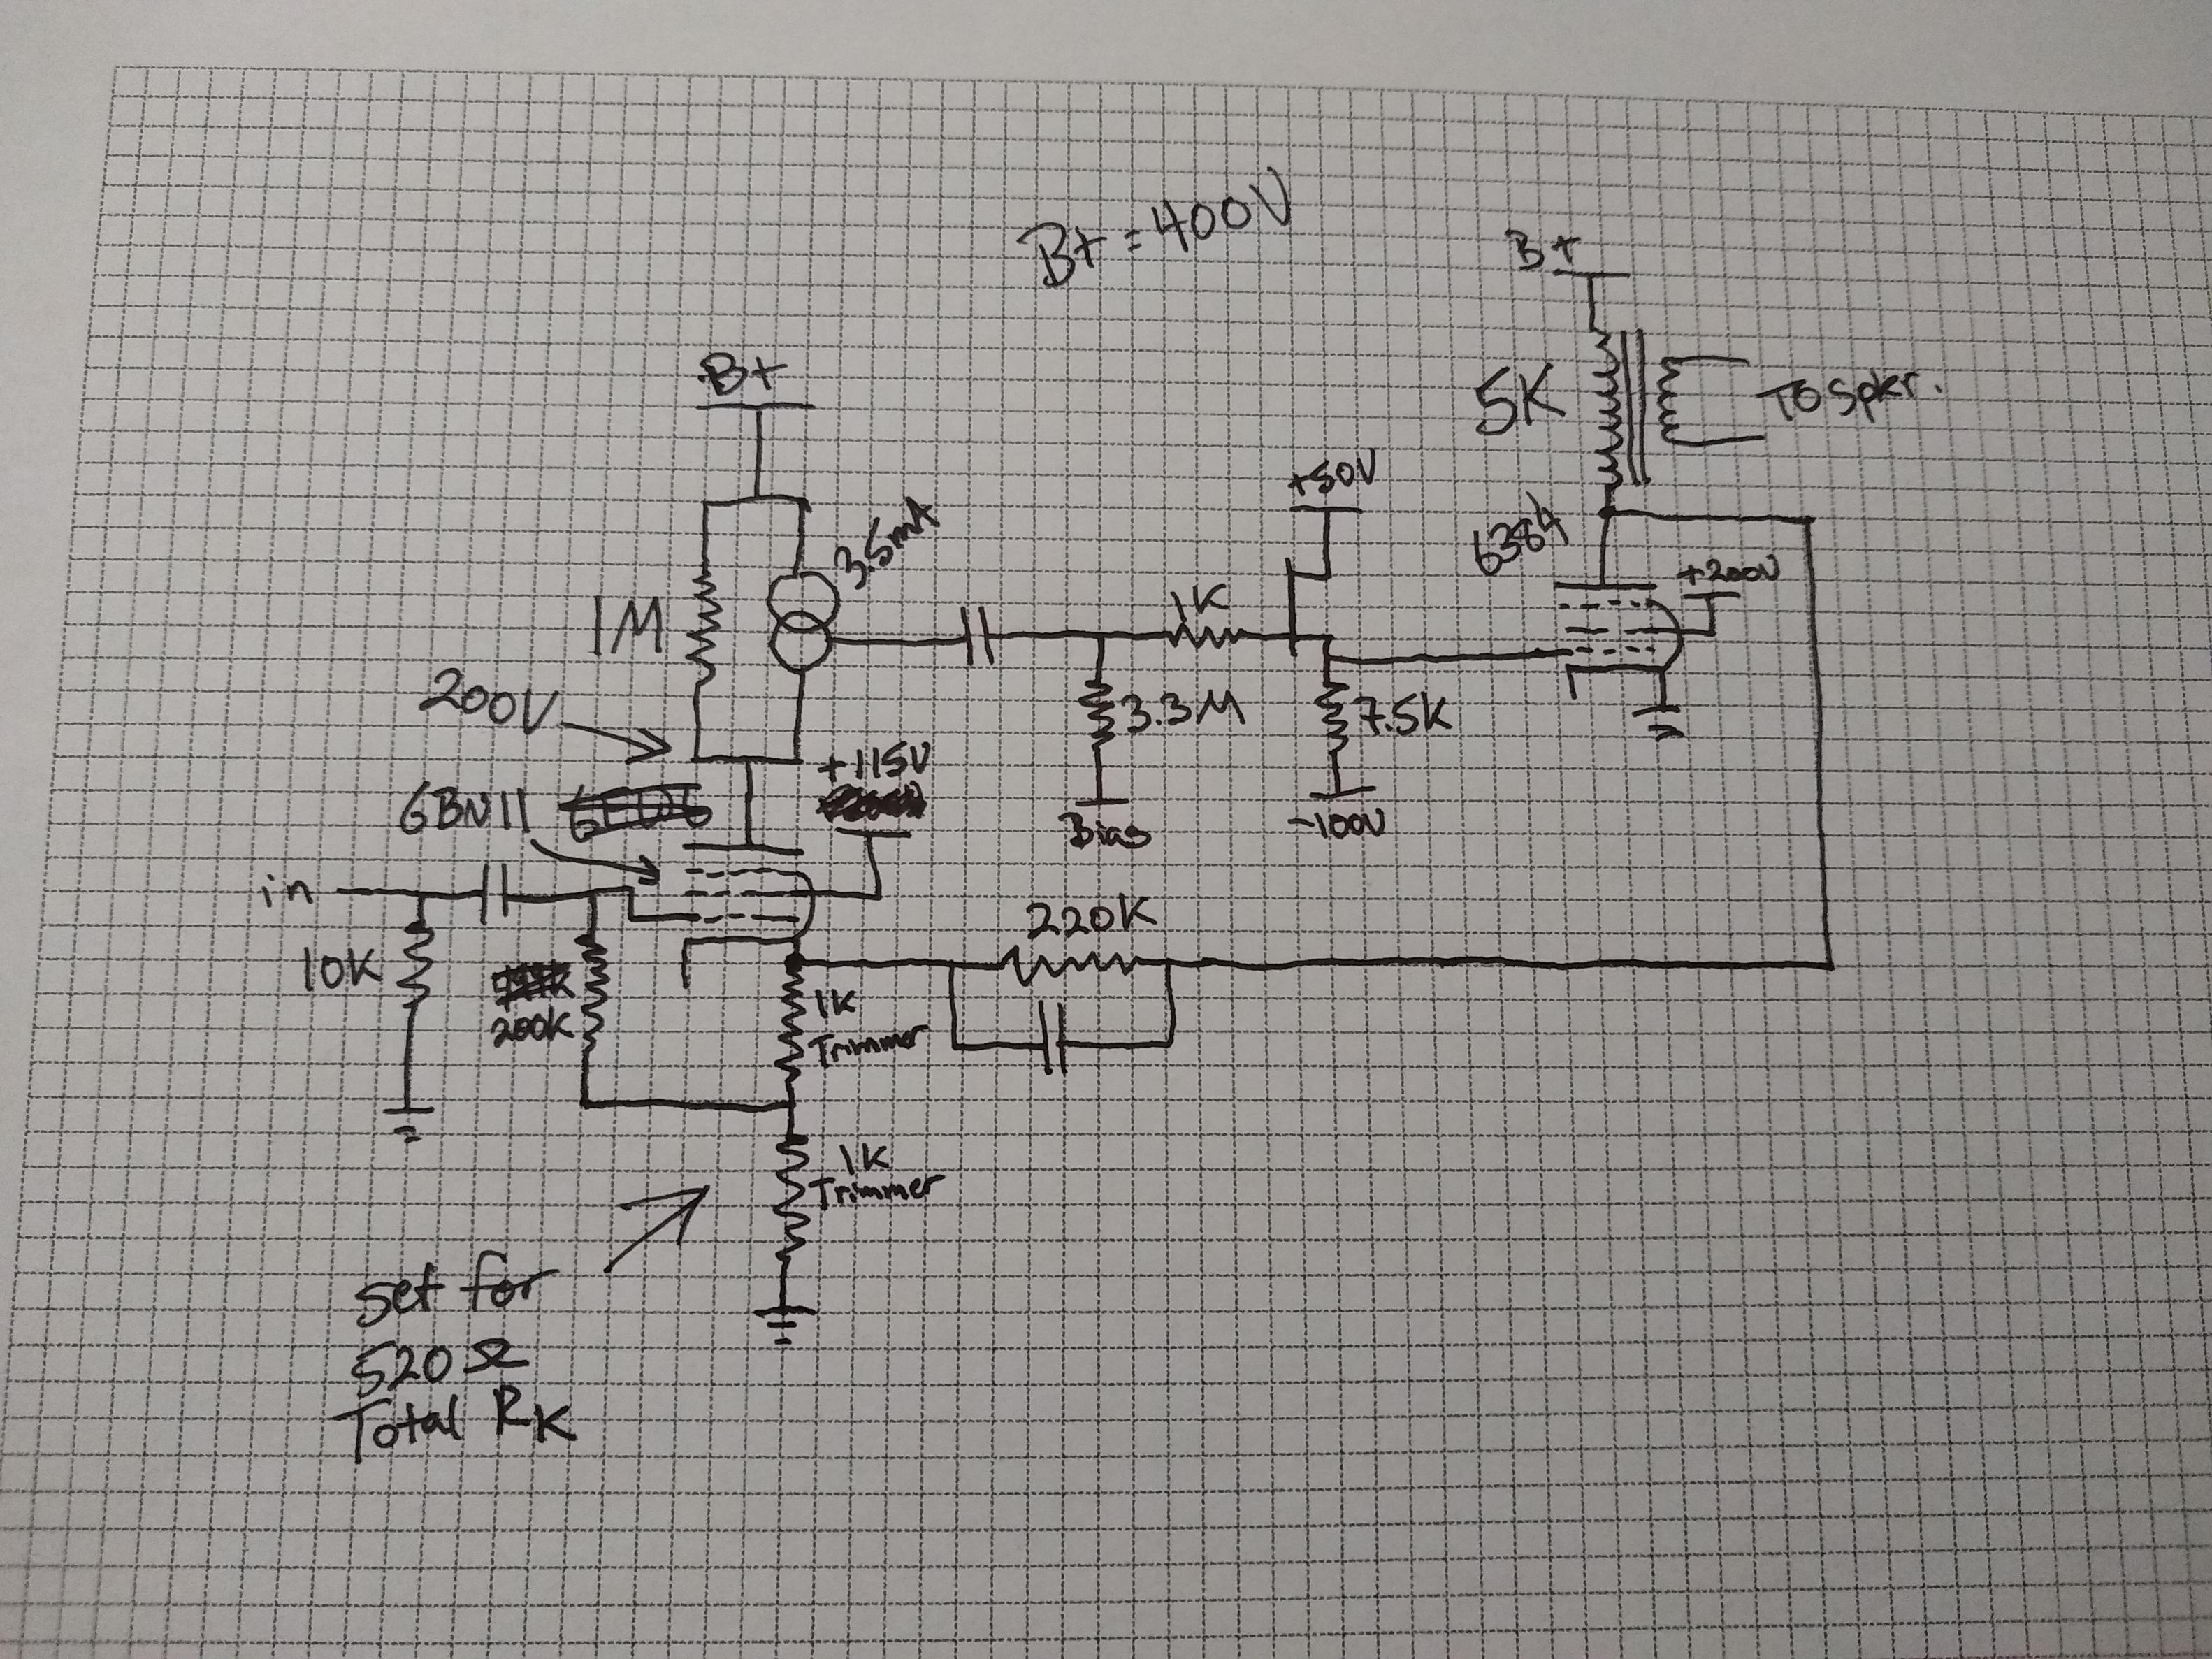 B+ = 400V
B+
5K
To Spkr.
B+
3.5mA
+50V
6384
+200V
1M
1K
200V
3.3M
7.5K
+115V
6BN11
Bias
-100V
in
220K
10K
200K
1K
Trimmer
1K
Trimmer
set for
520 Ω
Total RK